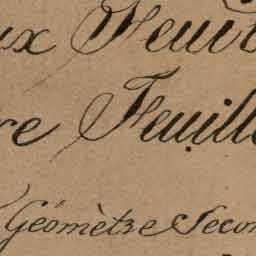 ux Feuil
re Feuille
Géomètre Secon